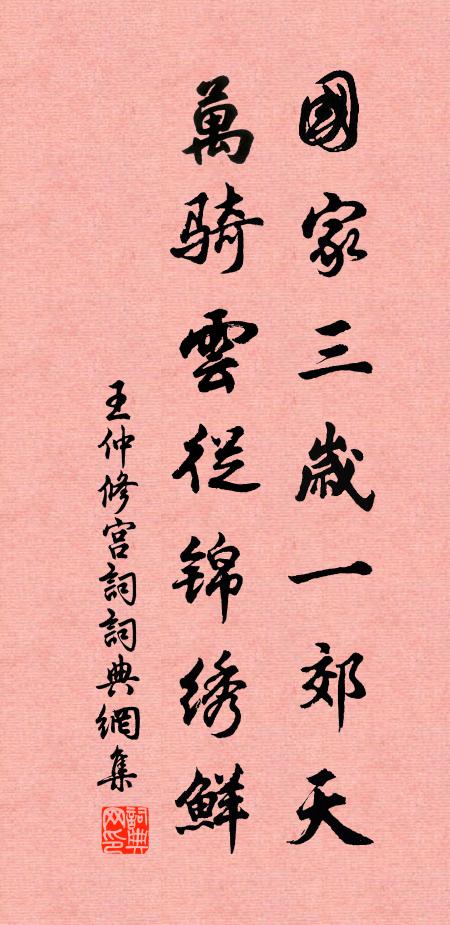 國家三歲一郊天
萬騎雲從錦綉鮮
王仲修宫詞詞典網集
詞典网印